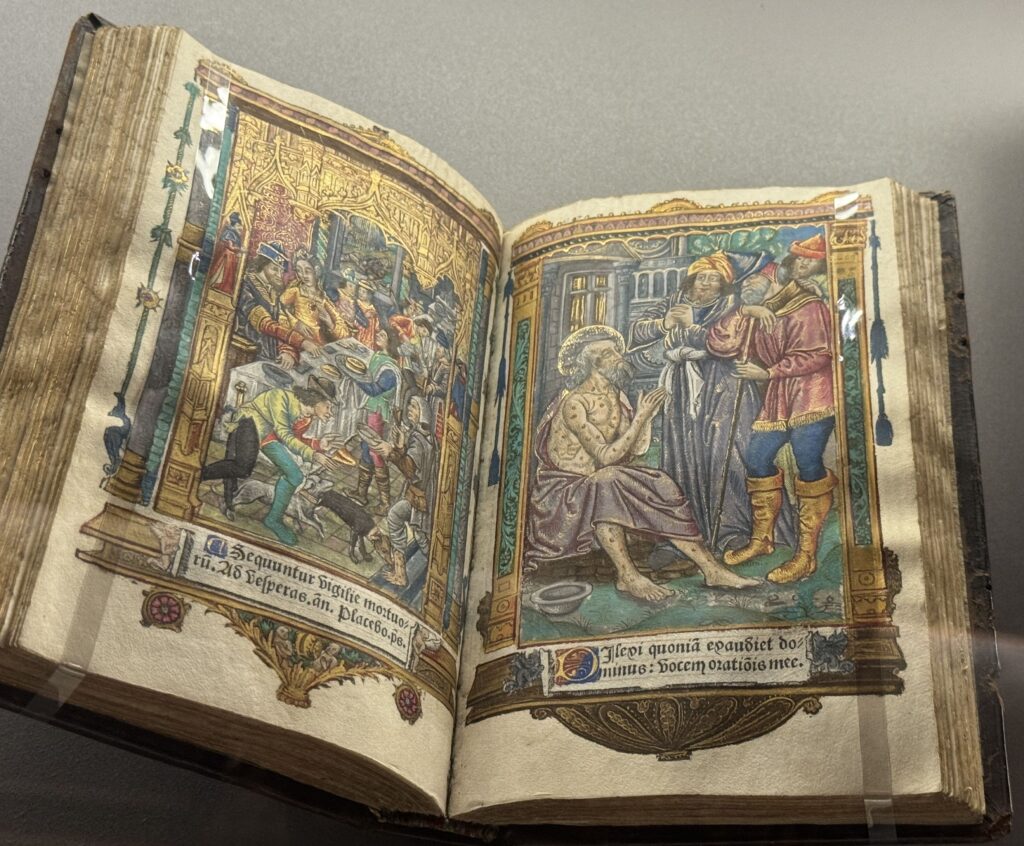 Sequuntur vigilie mortuo-
rū. Ad vesperas. añ. Placebo. ps.
Dilexi quoniā exaudiet do-
minus: vocem orationis mee.